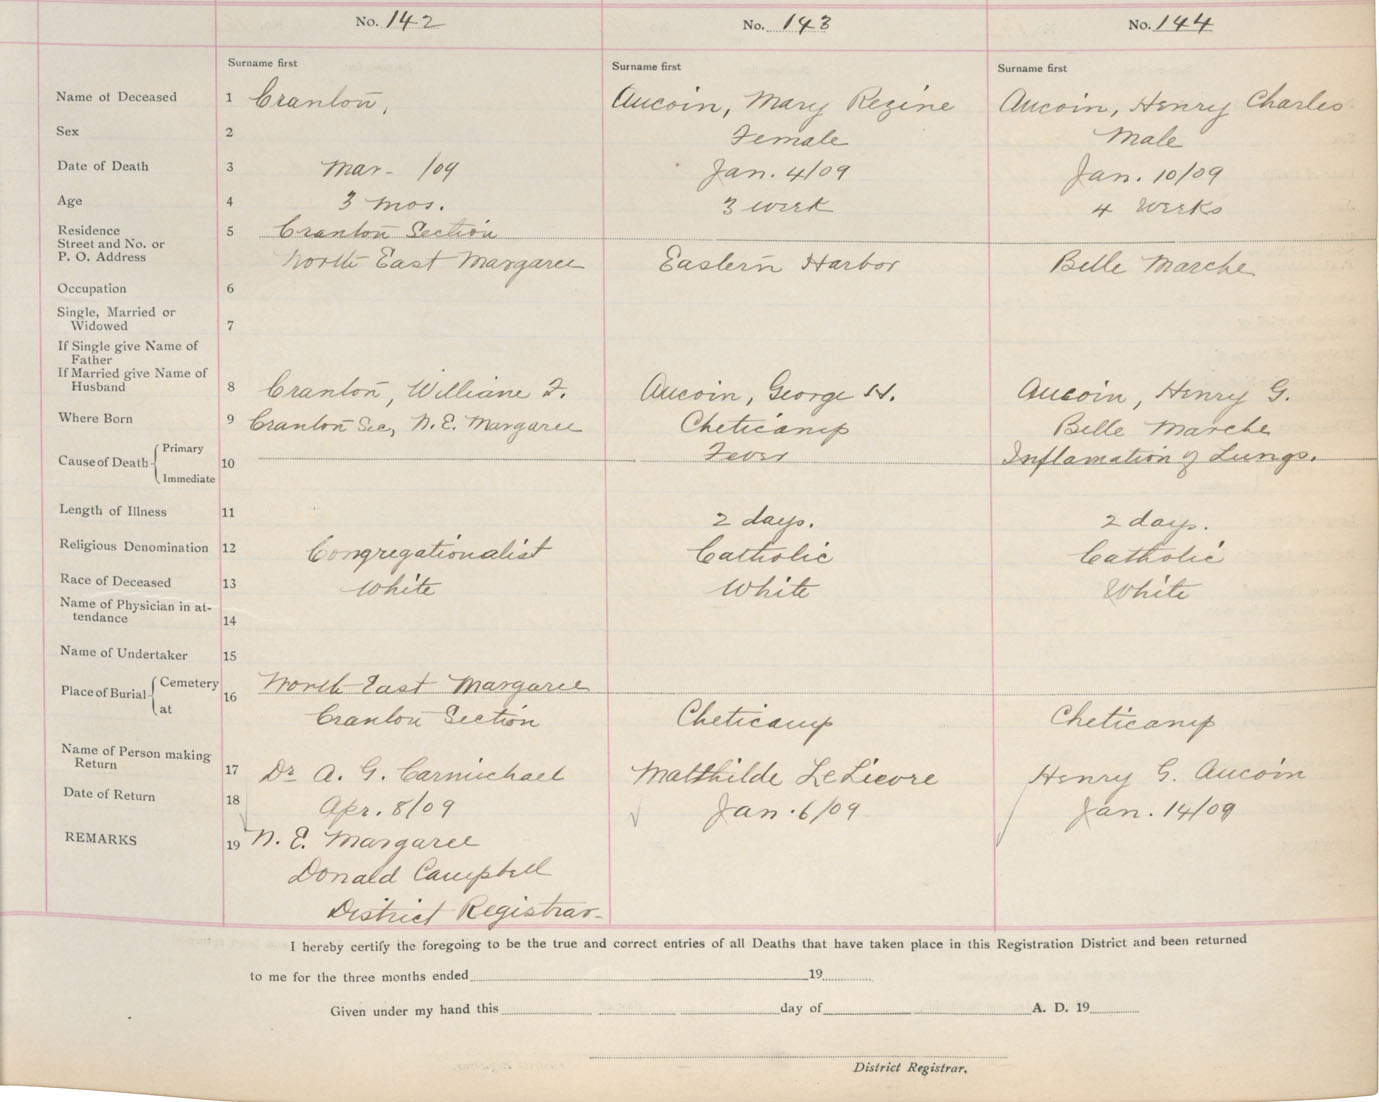 No. 142 No. 143 No. 144
Surname first Surname first Surname first
Name of Deceased 1 Cranton, Aucoin, Mary Regine Aucoin, Henry Charles
Sex 2 Female Male
Date of Death 3 Mar- /09 Jan. 4/09 Jan. 10/09
Age 4 3 mos. 3 week 4 weeks
Residence 5 Cranton Section
Street and No. or
P. O. Address North East Margaree Eastern Harbor Belle Marche
Occupation 6
Single, Married or
Widowed 7
If Single give Name of
Father
If Married give Name of
Husband 8 Cranton, William F. Aucoin, George H. Aucoin, Henry G.
Where Born 9 Cranton Sec, N. E. Margaree Cheticamp Belle Marche
Cause of Death Primary 10 Fever Inflamation of Lungs.
Immediate
Length of Illness 11 2 days. 2 days.
Religious Denomination 12 Congregationalist Catholic Catholic
Race of Deceased 13 White White White
Name of Physician in at-
tendance 14
Name of Undertaker 15
Place of Burial Cemetery 16 North East Margaree
at Cranton Section Cheticamp Cheticamp
Name of Person making
Return 17 Dr A. G. Carmichael Matthilde LeLievre Henry G. Aucoin
Date of Return 18 Apr. 8/09 Jan. 6/09 Jan. 14/09
REMARKS 19 N. E. Margaree
Donald Campbell
District Registrar-
I hereby certify the foregoing to be the true and correct entries of all Deaths that have taken place in this Registration District and been returned
to me for the three months ended 19
Given under my hand this day of A. D. 19
District Registrar.